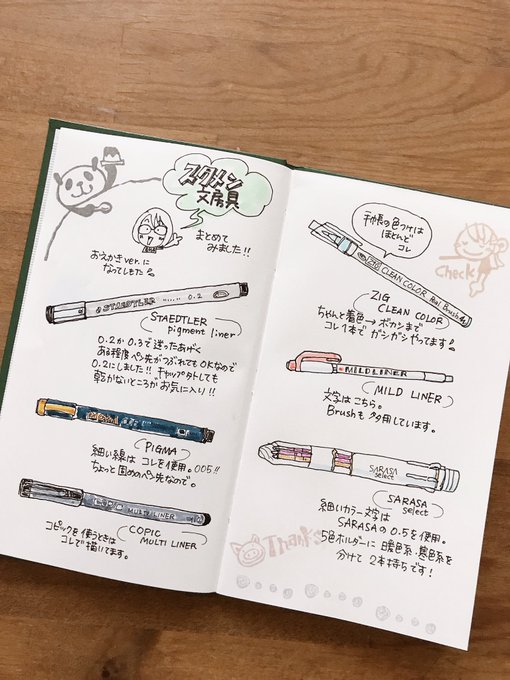 スタメン
文房具
まとめて
みました!!
おえかきver.に
なってしもた。
STAEDTLER 0.2
STAEDTLER
pigment liner
0.2か0.3で迷ったあげく
ある程度ペン先がつぶれてもOKなので
0.2にしました!! キャップ外しても
乾かないところがお気に入り!!
PIGMA
細い線はコレを使用。005!!
ちょっと固めのペン先なので。
COPIC MULTI LINER
COPIC
MULTI LINER
コピックを使うときは
コレで描いてます。
手帳の色づけは
ほとんど
コレ
Check
ZIG CLEAN COLOR Real Brush
ZIG
CLEAN COLOR
ちゃんと着色→ボカシまで
コレ1本でガシガシやってます!
MILDLINER
MILD LINER
文字はこちら。
Brushも多用しています。
SARASA
select
SARASA
select
細いカラー文字は
SARASAの0.5を使用。
5色ホルダーに暖色系・寒色系を
分けて2本持ちです!
Thanks